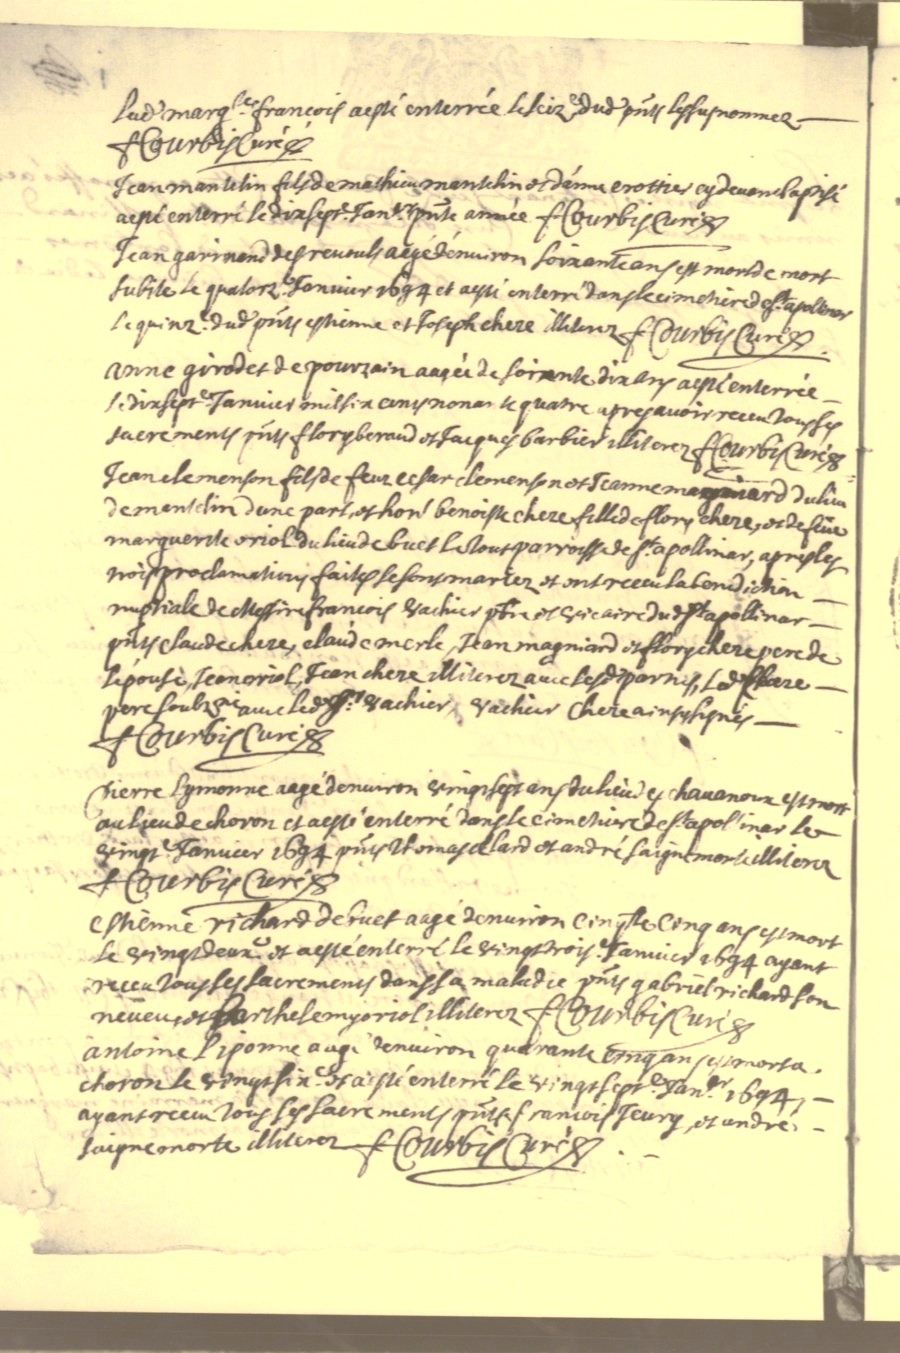 Lad.e marg.te francois a esté enterrée le seiz.e dud. pnts les susnommez
f Courbis Curé
Jean mantelin fils de mathieu mantelin et d'anne crottier cy devant baptisé
a esté enterré le dix sept.e Janv.r pnte année f Courbis Curé
Jean garinond des reuouls aagé d'environ soixante ans est mort de mort
subite le quatorz.e Janvier 1694 et a esté enterré dans le cimetiere de st apolinar
le quinz.e dud. pnts estienne et Joseph chere illiterez f Courbis Curé
anne girodet de pourzain aagée de soixante dix ans a esté enterrée
le dix sept.e Janvier mil six cents nonante quatre apres avoir receu tous ses
sacrements pnts flory beraud et Jacques barbier illiterez f Courbis Curé
Jean clemenson fils de feu cesar clemenson et Jeanne magniard du lieu
de mantelin d'une part, et hon.te benoiste chere fille de flory chere, et de feüe
marguerite oriol du lieu de buet le tout parroisse de st apollinar, apres les
trois proclamations faites se sont mariez et ont receu la benediction
nuptiale de Messire francois vachier pbre et vicaire dud. st apollinar
pnts claude chere, claude merle, Jean magniard et flory chere pere de
l'épouse, Jean oriol, Jean chere illiterez avec lesd. parties, led. chere
pere soubzsigné avec led. Sr. vachier, vachier Chere ainsy signés
f Courbis Curé
Pierre lymonne aagé denviron vingt sept ans du lieu des chavanoux est mort
au lieu de choron et a esté enterré dans le cimetiere de st apolinar le
vingt.e Janvier 1694 pnts Thomas allard et andré saignemorte illiterez
f Courbis Curé
Estienne richard de buet aagé denviron cinq.te cinq ans est mort
le vingt deux.e et a esté enterré le vingt trois.e Janvier 1694 ayant
receu tous ses sacrements dans sa maladie pnts gabriel richard son
neveu, et barthelemy oriol illiterez f Courbis Curé
antoine liponne aagé denviron quarante cinq ans est mort a
choron le vingt six.e et a esté enterré le vingt sept.e Janv.r 1694,
ayant receu tous ses sacrements pnts francois Jeury, et andré
saignemorte illiterez f Courbis Curé